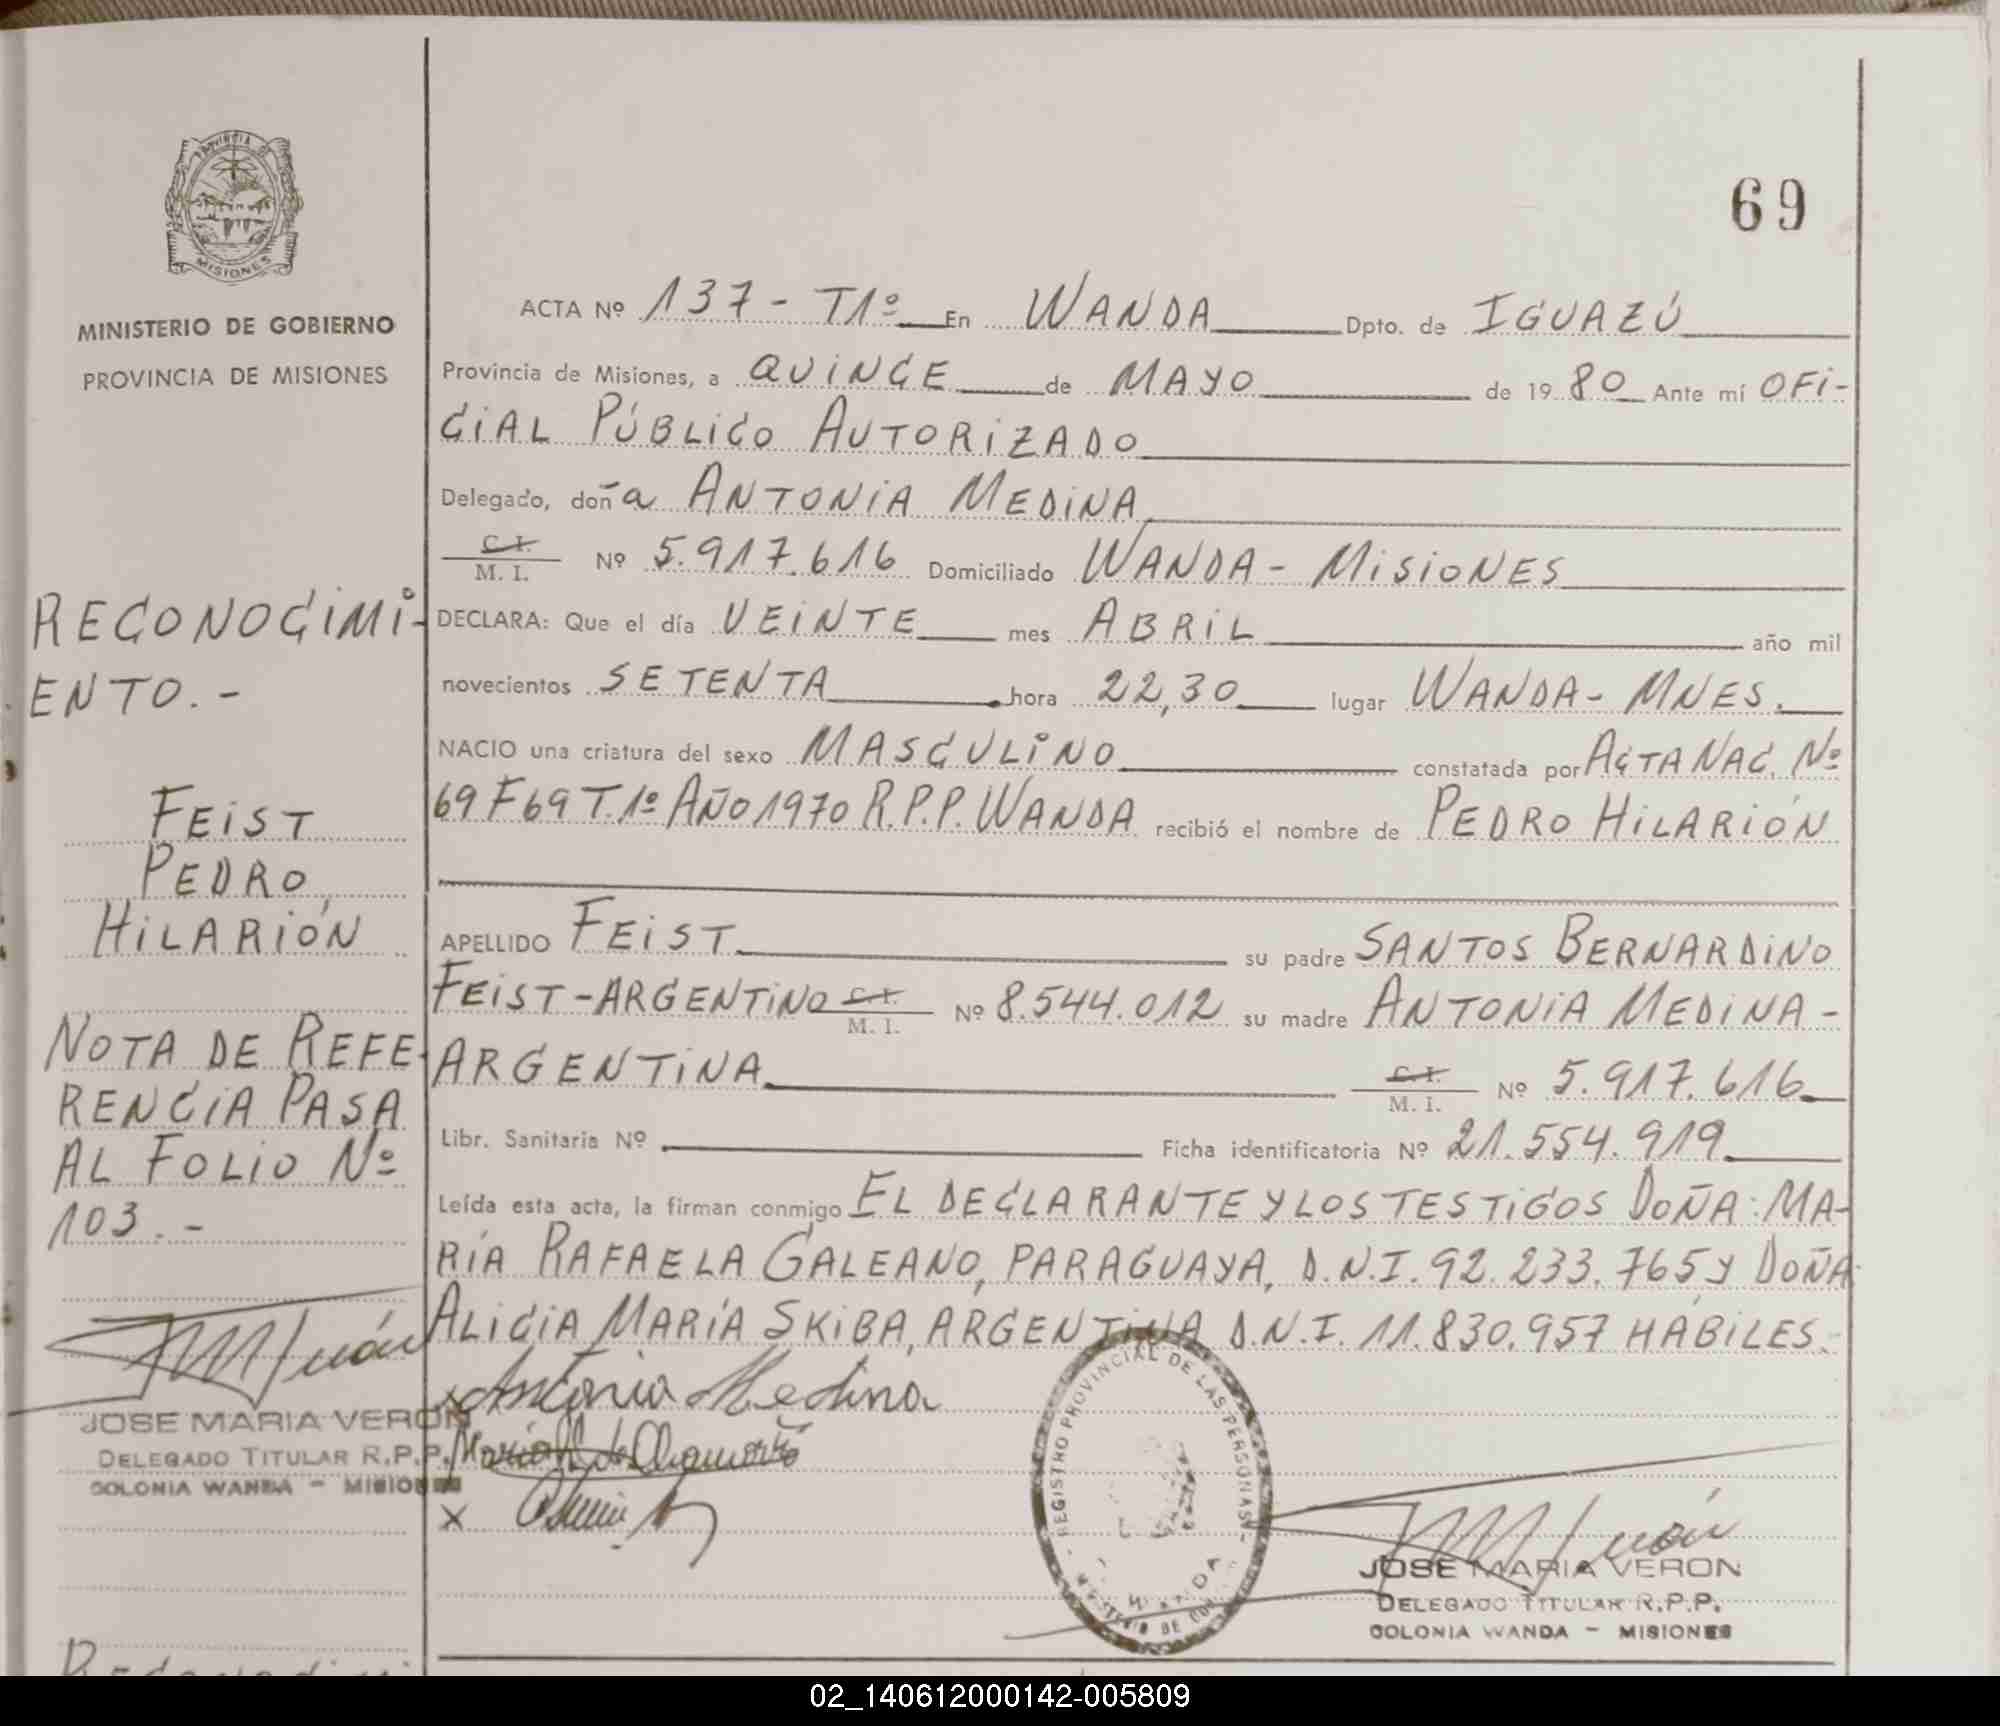 PROVINCIA DE
MISIONES
MINISTERIO DE GOBIERNO
PROVINCIA DE MISIONES
RECONOCIMI-
ENTO.-
FEIST
PEDRO
HILARIÓN
NOTA DE REFE-
RENCIA PASA
AL FOLIO Nº
103.-
JOSE MARIA VERON
DELEGADO TITULAR R.P.P.
COLONIA WANDA - MISIONES
69
ACTA Nº 137 - T1º En WANDA Dpto. de IGUAZÚ
Provincia de Misiones, a QUINCE de MAYO de 1980 Ante mí OFI-
CIAL PÚBLICO AUTORIZADO
Delegado, doña ANTONIA MEDINA
C.I.
M. I. Nº 5.917.616 Domiciliado WANDA - MISIONES
DECLARA: Que el día VEINTE mes ABRIL año mil
novecientos SETENTA hora 22,30 lugar WANDA - MNES.
NACIO una criatura del sexo MASCULINO constatada por ACTA NAC. Nº
69 F69 T.1º AÑO 1970 R.P.P. WANDA recibió el nombre de PEDRO HILARIÓN
APELLIDO FEIST su padre SANTOS BERNARDINO
FEIST - ARGENTINO C.I. M. I. Nº 8.544.012 su madre ANTONIA MEDINA -
ARGENTINA C.I. M. I. Nº 5.917.616
Libr. Sanitaria Nº Ficha identificatoria Nº 21.554.919
Leída esta acta, la firman conmigo EL DECLARANTE Y LOS TESTIGOS DOÑA: MA-
RÍA RAFAELA GALEANO, PARAGUAYA, D.N.I. 92.233.765 y DOÑA
ALICIA MARÍA SKIBA, ARGENTINA D.N.I. 11.830.957 HÁBILES.-
x Antonia Medina
x
REGISTRO PROVINCIAL DE LAS PERSONAS
JOSE MARIA VERON
DELEGADO TITULAR R.P.P.
COLONIA WANDA - MISIONES
02_140612000142-005809